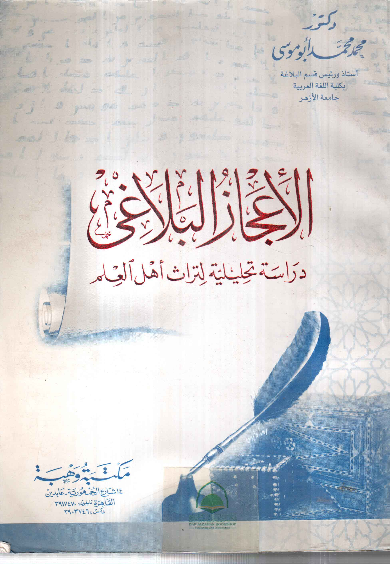 دكتور
محمد محمد أبو موسى
أستاذ ورئيس قسم البلاغة
بكلية اللغة العربية
جامعة الأزهر
الإعجاز البلاغى
دراسة تحليلية لتراث أهل العلم
مكتبة وهبة
١٤ شارع الجمهورية - عابدين
القاهرة